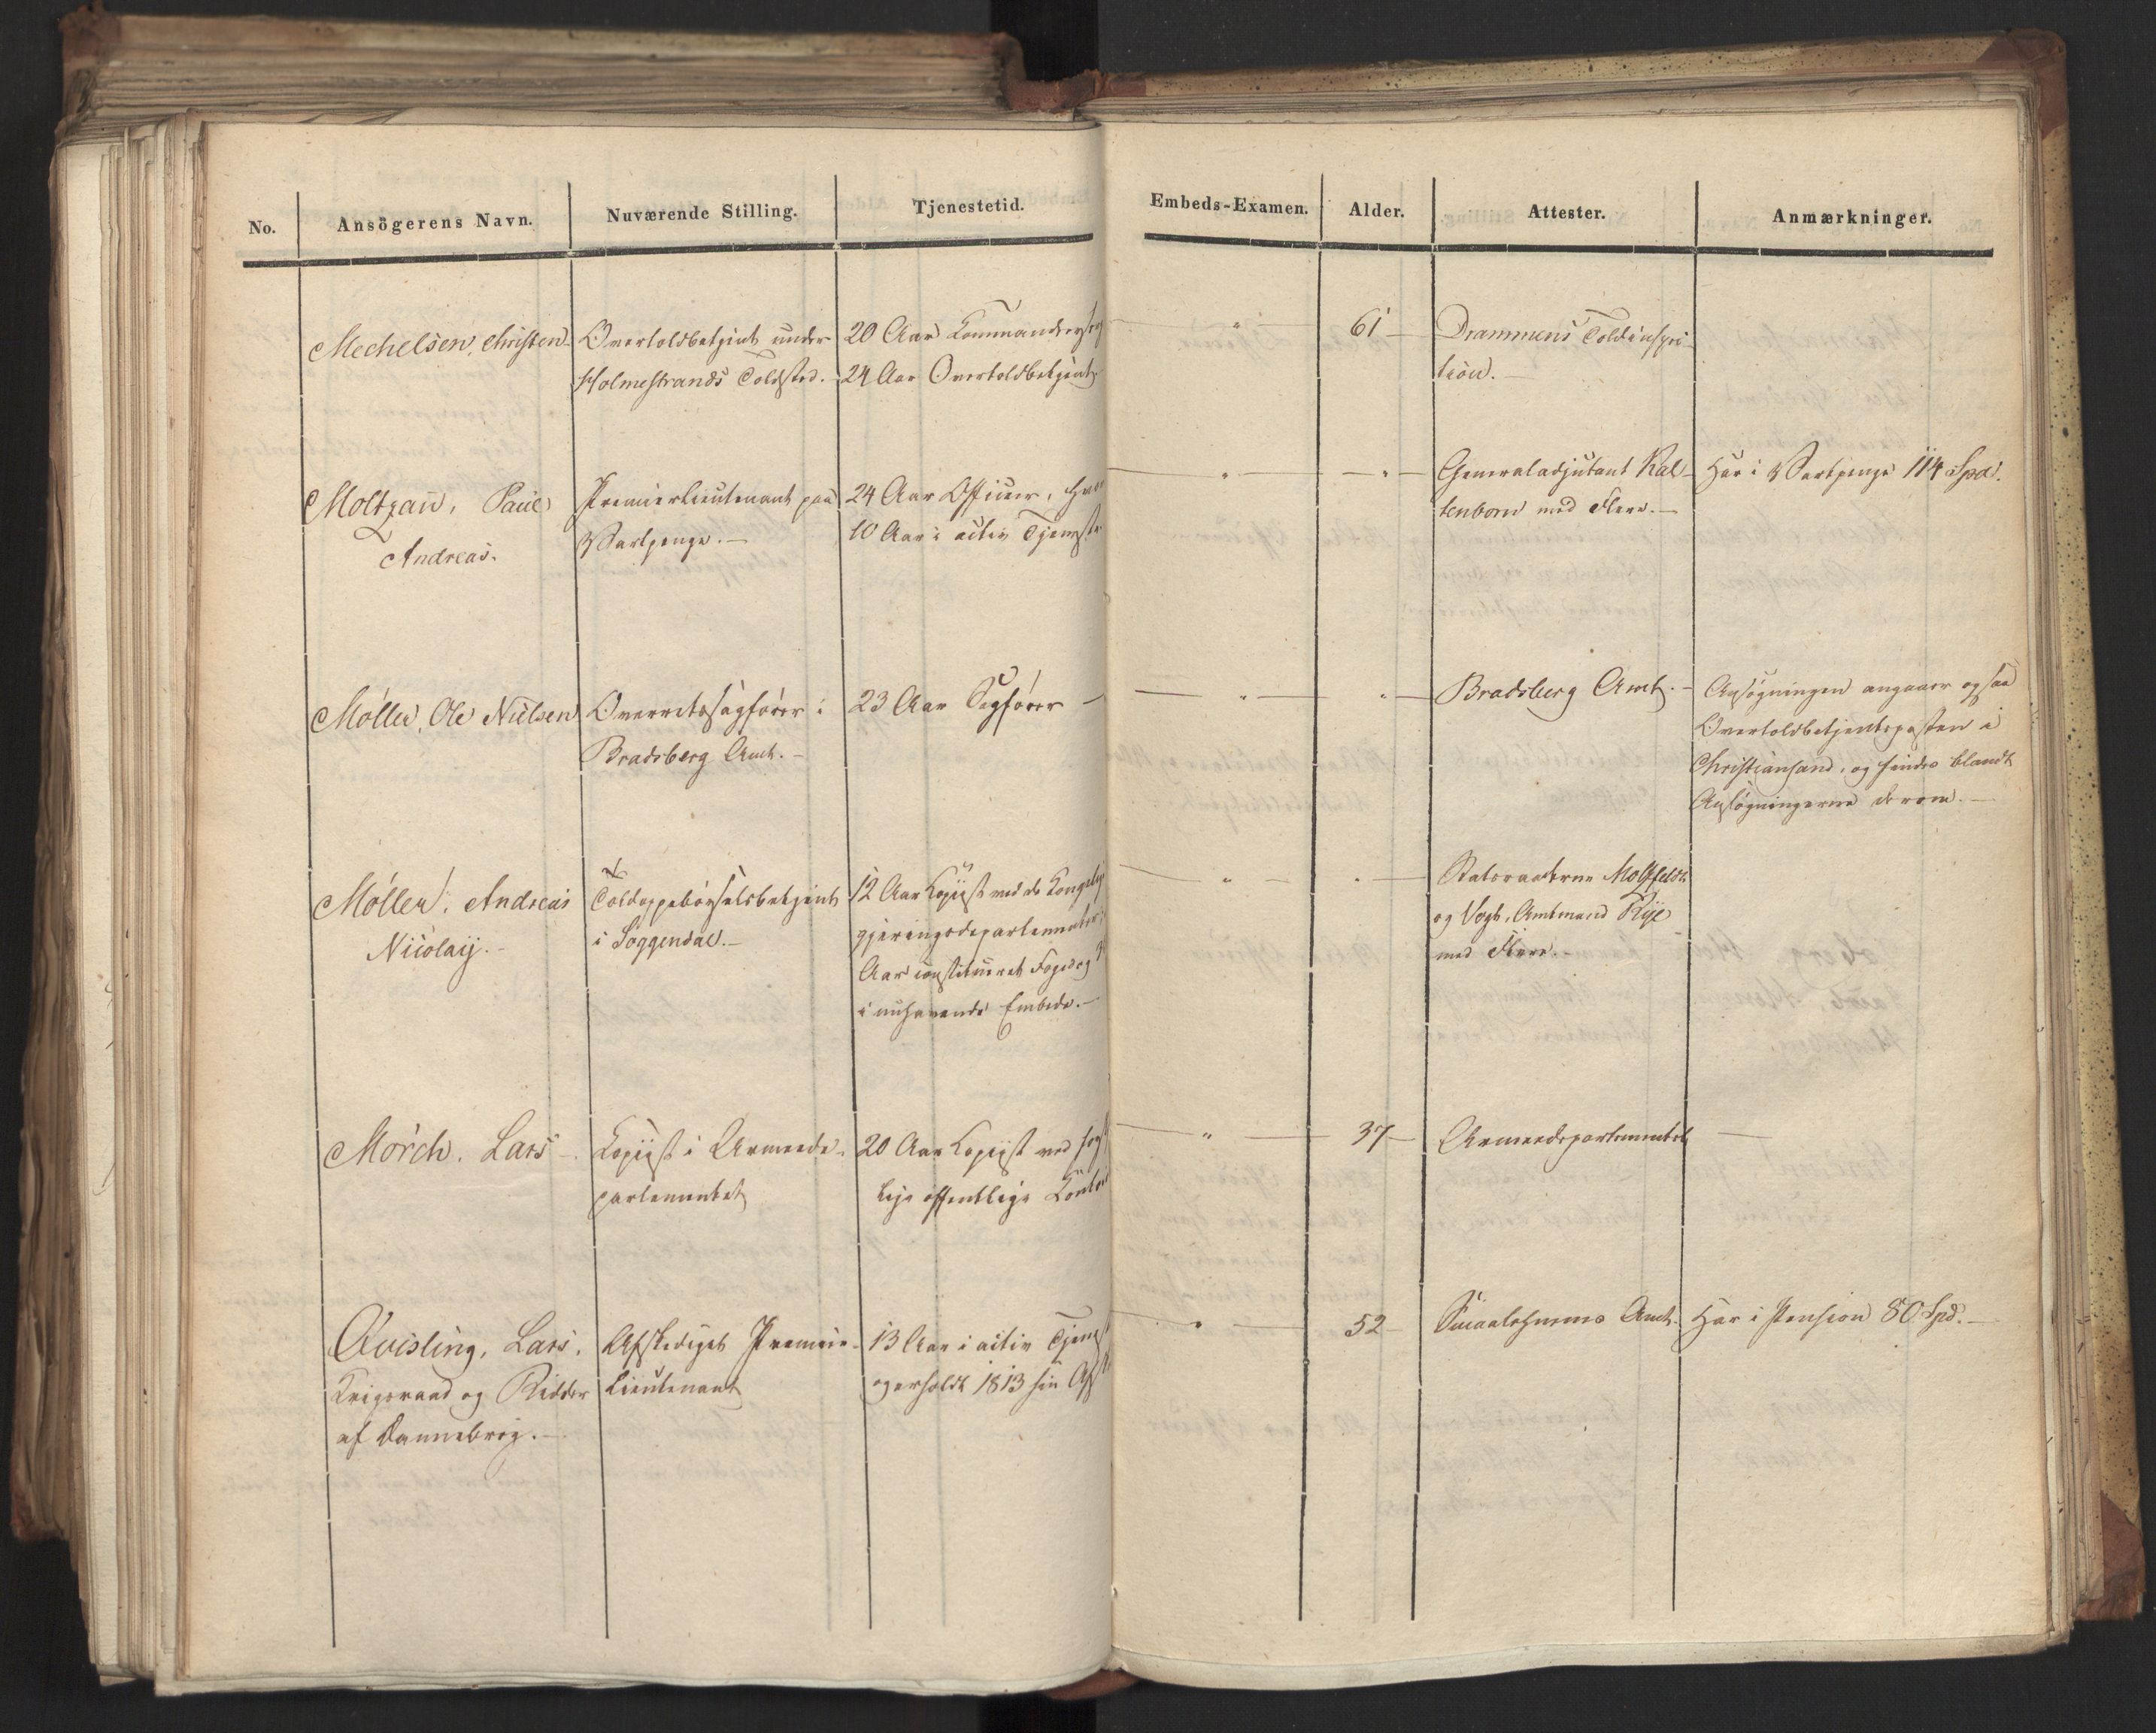 No.
Ansögerens Navn.
Nuværende Stilling.
Tjenestetid.
Embeds-Examen.
Alder.
Attester.
Anmærkninger.
Mechelsen, Christen
Overtoldbetjent under
Holmestrands Toldsted.
20 Aar
24 Aar Overtoldbetjent
"
61
Drammens Toldinspec-
tion.
Moltzau, Paul
Andreas.
Premierlieutenant paa
Vartpenge.
24 Aar Officier,
10 Aar i activ Tjeneste
"
"
Generaladjutant Kal-
tenborn med Flere.
Har i Vartpenge 114 Spd.
Möller, Ole Nielsen
Overretssagförer i
Bradsberg Amt.
23 Aar Sagförer
"
"
Bradsberg Amt.
Ansögningen angaaer ogsaa
Overtoldbetjentposten i
Christiansand, og findes blandt
Ansögningerne derom.
Möller, Andreas
Nicolaij.
Toldoppebörselsbetjent
i Soggendal.
12 Aar Kopiist ved de Kongelig
gjeringsdepartementer,
Aar constitueret Foged og
i nuhavende Embede.
"
"
Statsraaderne Motzfeldt
og Vogt, Amtmand Rye
med Flere.
Mörch, Lars
Kopiist i Armeede-
partementet
20 Aar Kopiist ved
lige offentlige Contoi
"
37
Armeedepartementet
Qvisling, Lars,
Krigsraad og Ridder
af Dannebrog.
Afskediget Premier-
lieutenant
13 Aar i activ Tjenest
og erholdt 1813 sin Afsk
"
52
Smaalehnenes Amt.
Har i Pension 80 Spd.